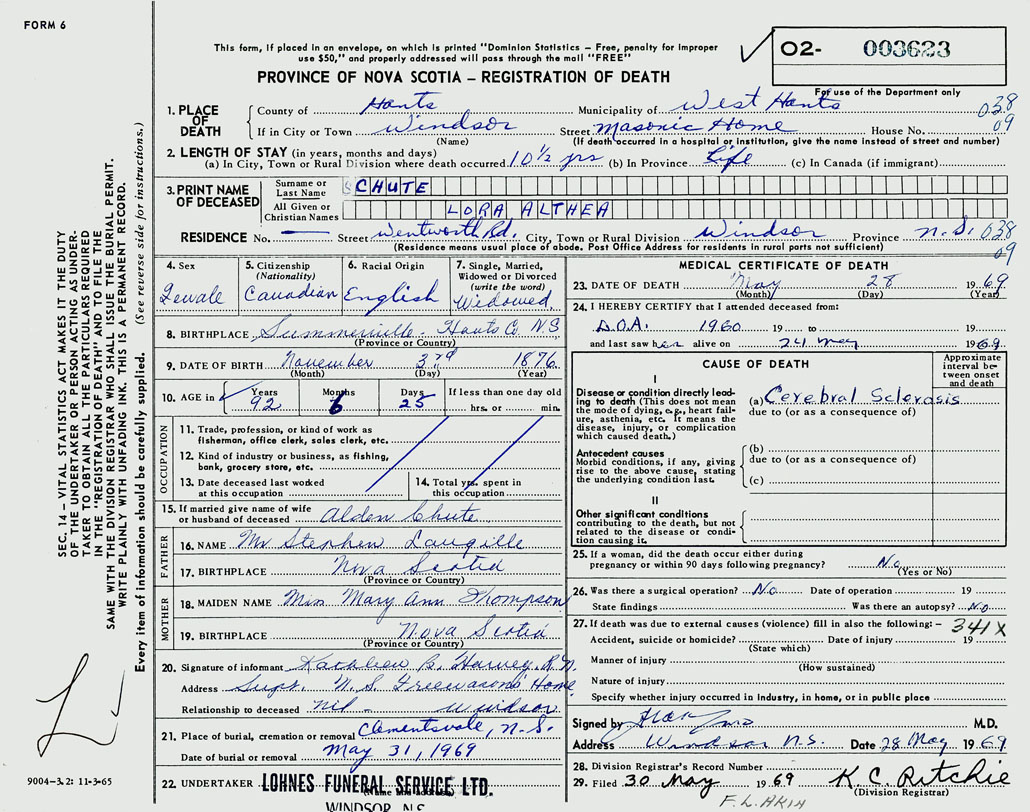 FORM 6
This form, if placed in an envelope, on which is printed "Dominion Statistics – Free, penalty for improper
use $50," and properly addressed will pass through the mail "FREE"
O2- 003623
For use of the Department only
PROVINCE OF NOVA SCOTIA – REGISTRATION OF DEATH
1. PLACE OF DEATH { County of Hants Municipality of West Hants 038
If in City or Town Windsor Street Masonic Home House No. 09
(Name) (If death occurred in a hospital or institution, give the name instead of street and number)
2. LENGTH OF STAY (in years, months and days)
(a) In City, Town or Rural Division where death occurred 10½ yrs (b) In Province Life (c) In Canada (if immigrant)
3. PRINT NAME OF DECEASED { Surname or Last Name CHUTE
All Given or Christian Names LORA ALTHEA
RESIDENCE No. — Street Wentworth Rd. City, Town or Rural Division Windsor Province N.S. 038
(Residence means usual place of abode. Post Office Address for residents in rural parts not sufficient) 09
4. Sex Female
5. Citizenship (Nationality) Canadian
6. Racial Origin English
7. Single, Married, Widowed or Divorced (write the word) Widowed
8. BIRTHPLACE Summerville - Hants Co. N.S
(Province or Country)
9. DATE OF BIRTH November 3rd 1876
(Month) (Day) (Year)
10. AGE in { Years Months Days If less than one day old
92 6 25 hrs. or min.
OCCUPATION
11. Trade, profession, or kind of work as
fisherman, office clerk, sales clerk, etc.
12. Kind of industry or business, as fishing,
bank, grocery store, etc.
13. Date deceased last worked
at this occupation
14. Total yrs. spent in
this occupation
15. If married give name of wife
or husband of deceased Alden Chute
FATHER
16. NAME Mr Stephen Langille
17. BIRTHPLACE Nova Scotia
(Province or Country)
MOTHER
18. MAIDEN NAME Miss Mary Ann Thompson
19. BIRTHPLACE Nova Scotia
(Province or Country)
20. Signature of informant Kathleen B. Harvey, R.N.
Address Supt. N.S. Freemasons Home
Relationship to deceased nil - Windsor
21. Place of burial, cremation or removal Clementsvale, N.S.
Date of burial or removal May 31, 1969
22. UNDERTAKER LOHNES FUNERAL SERVICE LTD.
WINDSOR, N.S.
MEDICAL CERTIFICATE OF DEATH
23. DATE OF DEATH May 28 1969
(Month) (Day) (Year)
24. I HEREBY CERTIFY that I attended deceased from:
D.O.A. 1960 19 to 19
and last saw her alive on 24 May 1969.
CAUSE OF DEATH
Approximate interval between onset and death
I
Disease or condition directly leading to death (This does not mean the mode of dying, e.g., heart failure, asthenia, etc. It means the disease, injury, or complication which caused death.)
(a) Cerebral Sclerosis
due to (or as a consequence of)
Antecedent causes
Morbid conditions, if any, giving rise to the above cause, stating the underlying condition last.
(b)
due to (or as a consequence of)
(c)
II
Other significant conditions
contributing to the death, but not related to the disease or condition causing it.
25. If a woman, did the death occur either during
pregnancy or within 90 days following pregnancy? No
(Yes or No)
26. Was there a surgical operation? No Date of operation 19
State findings Was there an autopsy? No
27. If death was due to external causes (violence) fill in also the following: – 341X
Accident, suicide or homicide? Date of injury 19
(State which)
Manner of injury
(How sustained)
Nature of injury
Specify whether injury occurred in industry, in home, or in public place
Signed by M.D.
Address Windsor N.S. Date 28 May 1969
28. Division Registrar's Record Number
29. Filed 30 May 1969 K. C. Ritchie
(Division Registrar)
F. L. AKIN
SEC. 14 – VITAL STATISTICS ACT MAKES IT THE DUTY
OF THE UNDERTAKER OR PERSON ACTING AS UNDER-
TAKER TO OBTAIN ALL THE PARTICULARS REQUIRED
IN THE "REGISTRATION OF DEATH" AND TO FILE THE
SAME WITH THE DIVISION REGISTRAR WHO SHALL ISSUE THE BURIAL PERMIT.
WRITE PLAINLY WITH UNFADING INK. THIS IS A PERMANENT RECORD.
Every item of information should be carefully supplied. (See reverse side for instructions.)
9004-3.2: 11-3-65